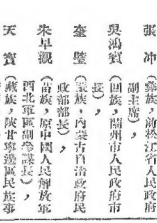 張　冲（彝族，前松江省人民政府
副主席），
吳鴻賓（回族，蘭州市人民政府市
長），
奎　璧（蒙族，內蒙古自治政府民
政部部長），
朱早觀（苗族，中國人民解放軍
河北軍區副參謀長），
天　寶（藏族，陝北寧邊區民族事